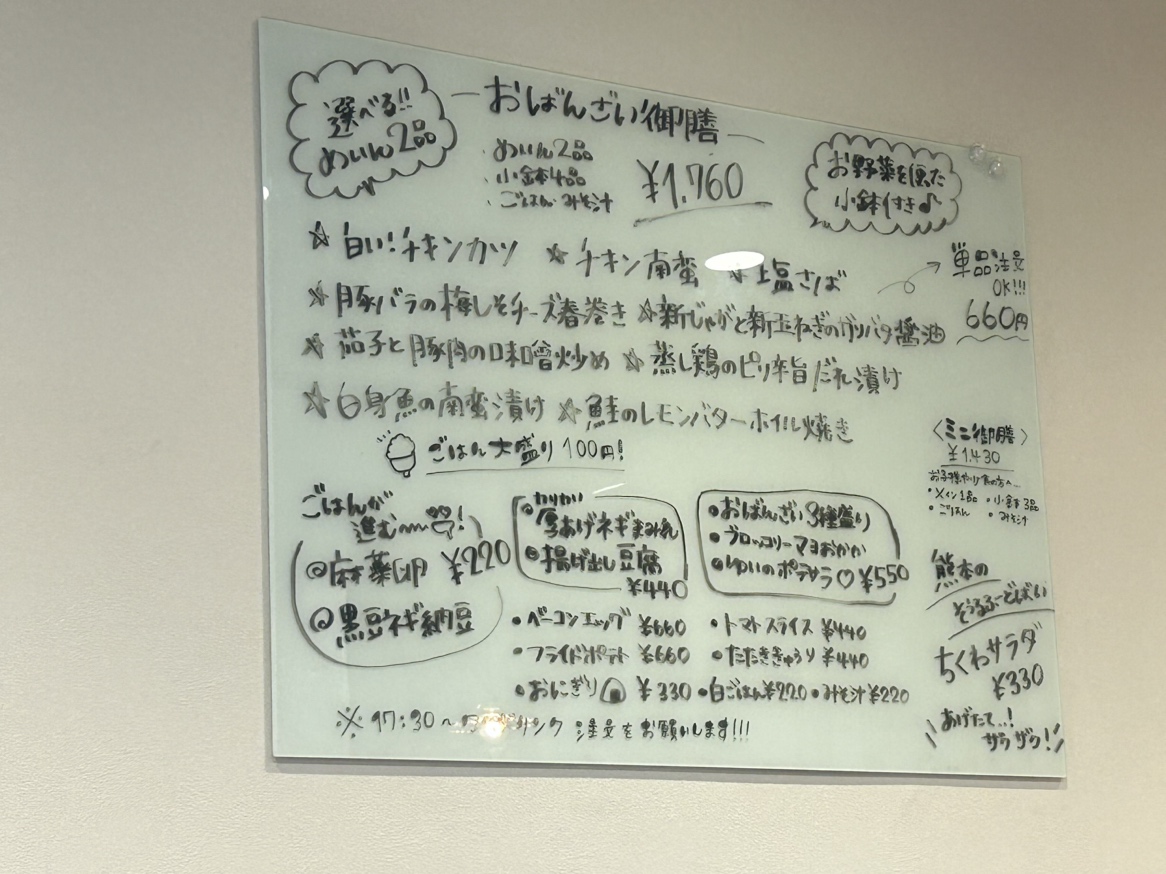 選べる!!
めいん2品
おばんざい御膳
・めいん2品
・小鉢4品
・ごはん みそ汁
¥1,760
お野菜を使った
小鉢付き♪
☆白い!チキンカツ ☆チキン南蛮 ☆塩さば
単品注文
OK!!!
660円
☆豚バラの梅しそチーズ春巻き ☆新じゃがと新玉ねぎのガリバタ醤油
☆茄子と豚肉の味噌炒め ☆蒸し鶏のピリ辛旨だれ漬け
☆白身魚の南蛮漬け ☆鮭のレモンバターホイル焼き
ごはん大盛り100円!
〈ミニ御膳〉
¥1,430
・メイン1品 ・小鉢3品
・ごはん ・みそ汁
ごはんが
進む〜!
◎麻薬卵 ¥220
◎黒豆ネギ納豆
かりかり
厚あげネギまみれ
揚げ出し豆腐
¥440
●おばんざい3種盛り
●ブロッコリーマヨおかか
●ゆいのポテサラ♡ ¥550
・ベーコンエッグ ¥660 ・トマトスライス ¥440
・フライドポテト ¥660 ・たたききゅうり ¥440
・おにぎり ¥330 ・白ごはん¥220 ・みそ汁¥220
熊本の
そうるふーどばい
ちくわサラダ
¥330
あげたて..!
ザクザク!
※17:30〜 注文をお願いします!!!